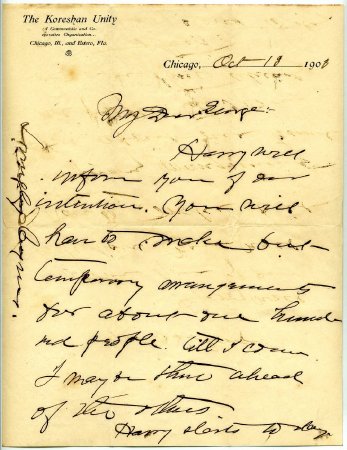 The Koreshan Unity
A Communistic and Co-
operative Organization...
Chicago, Ill., and Estero, Fla.
Chicago, Oct 19 190
My Dear George:
Harry will
inform you of our
intention. You will
have to make first
temporary arrangements
for about one hund
red people till I come
I may be there ahead
of the others
Harry starts to day